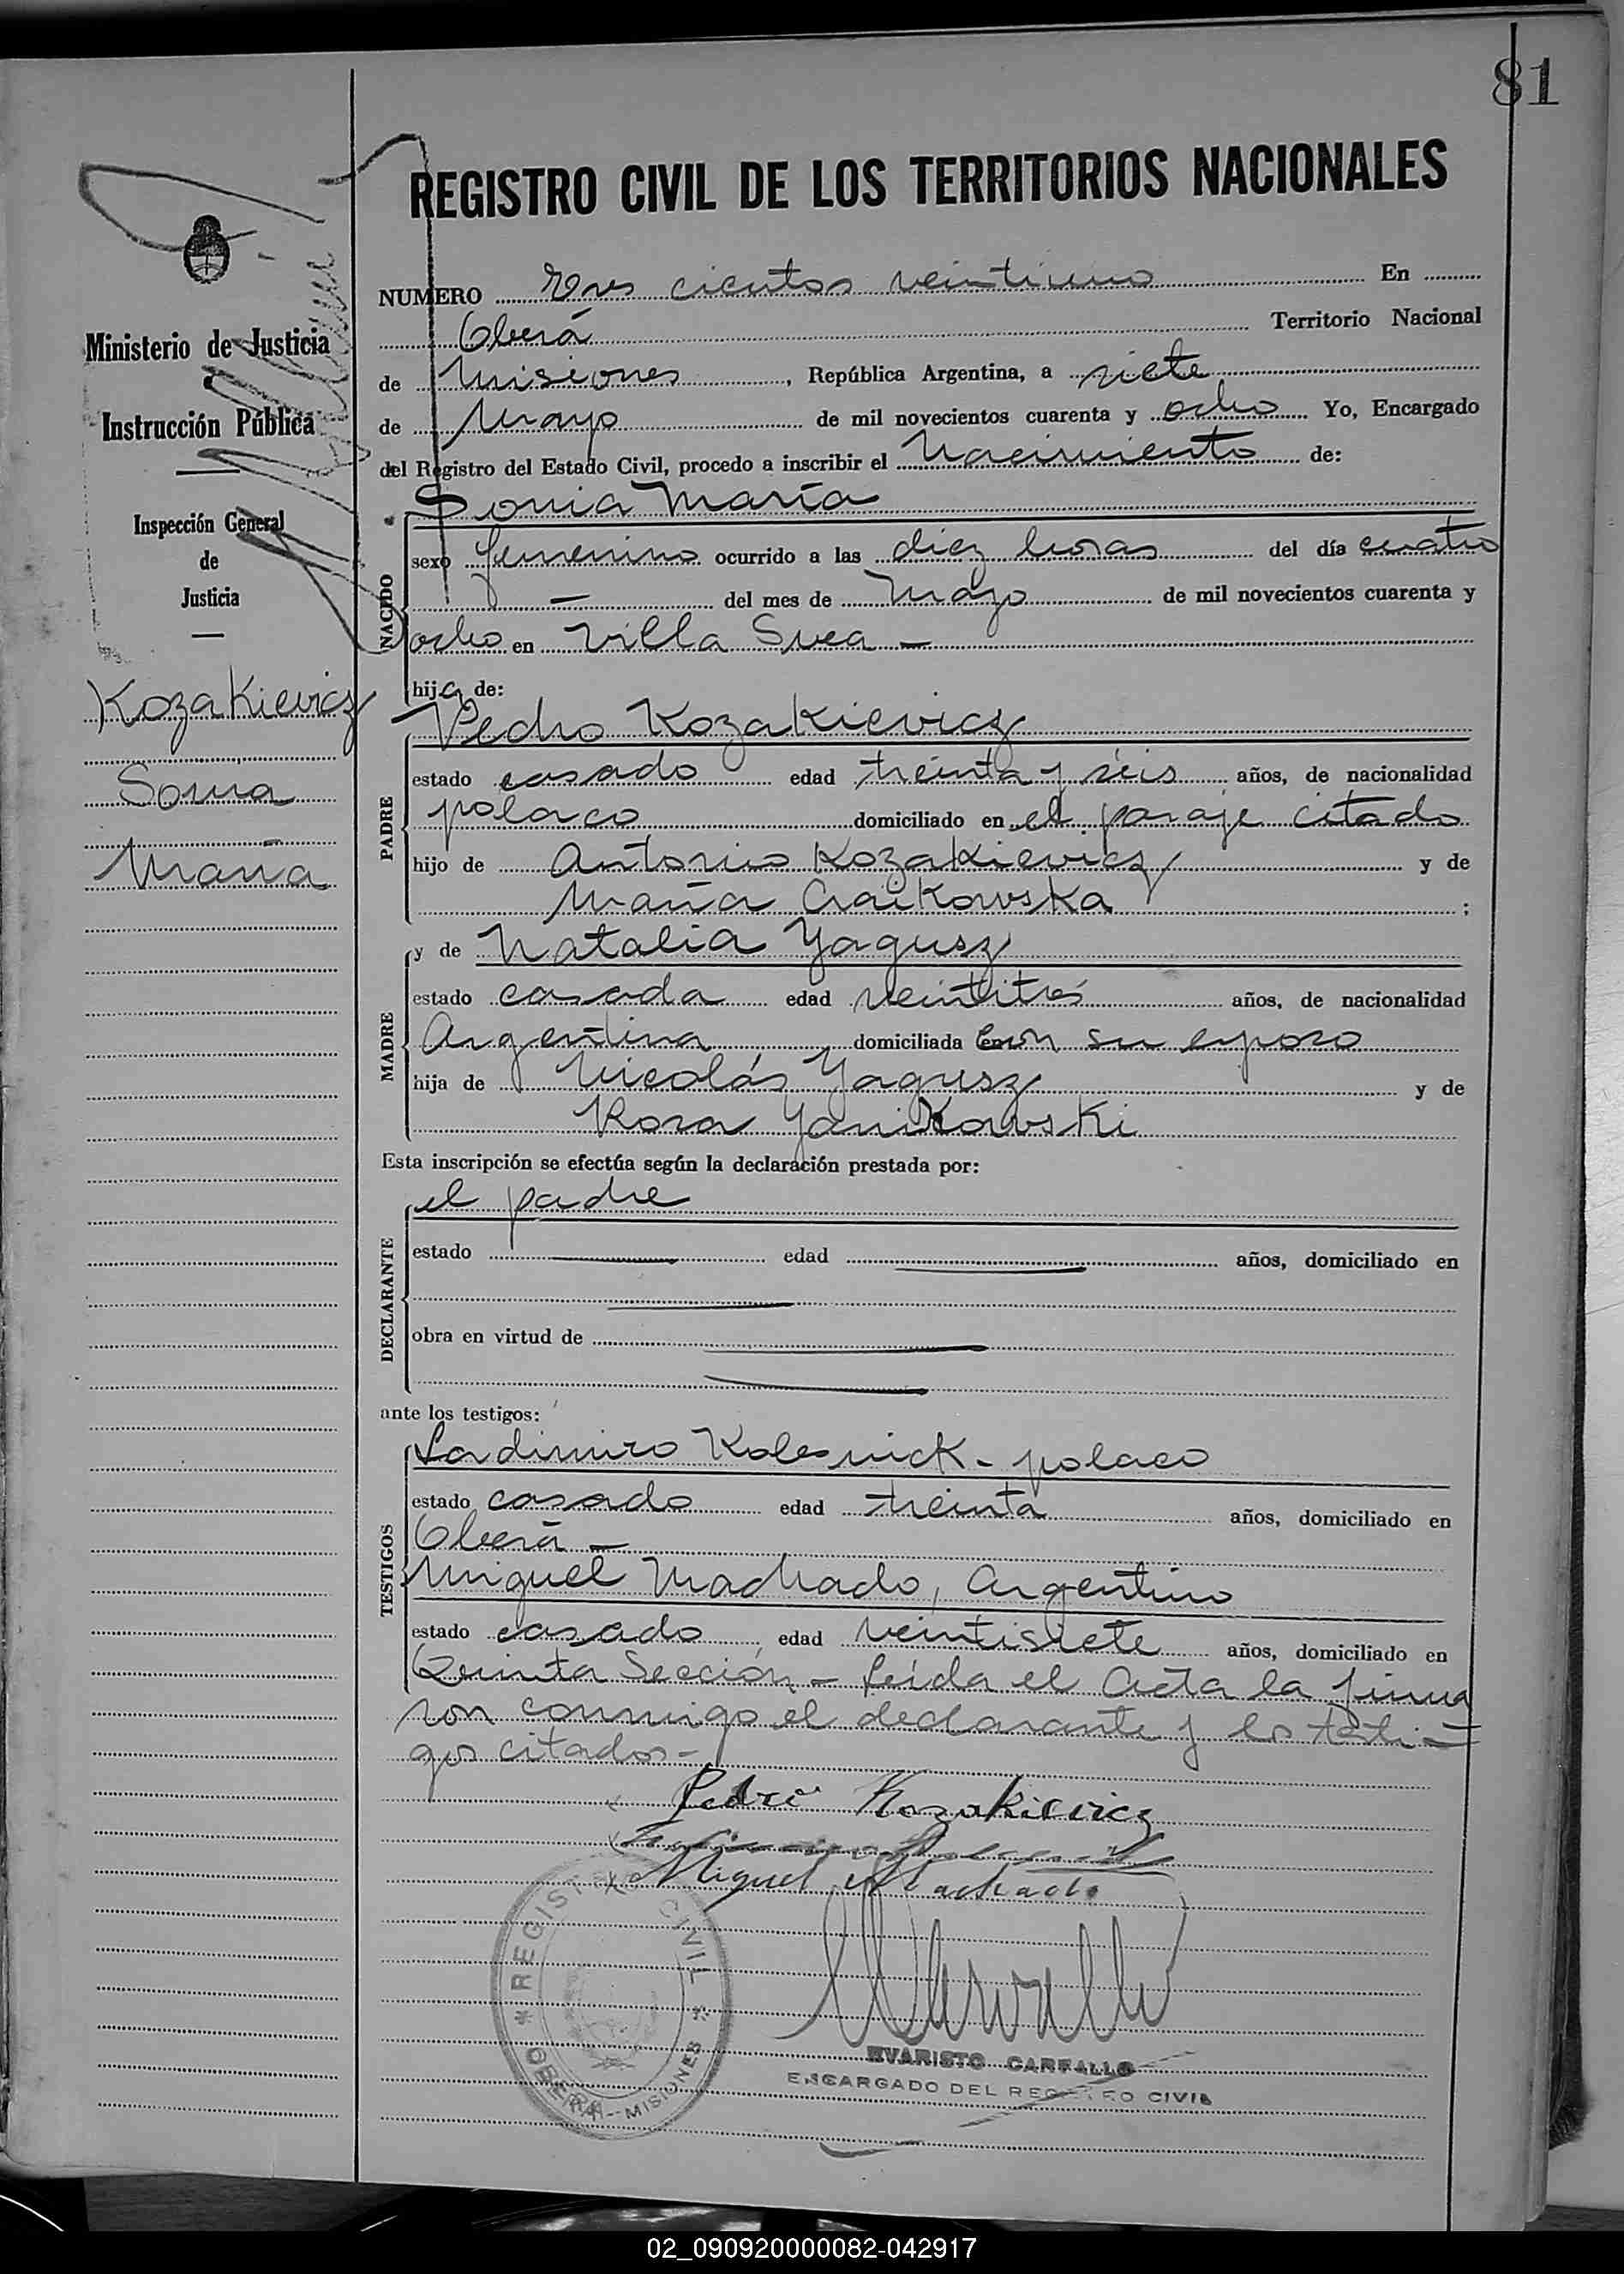 81
REGISTRO CIVIL DE LOS TERRITORIOS NACIONALES
Ministerio de Justicia
Instrucción Pública
Inspección General
de
Justicia
Kozakievicz
Sonia
María
NUMERO Tres cientos veintiuno En
Oberá Territorio Nacional
de Misiones, República Argentina, a siete
de Mayo de mil novecientos cuarenta y ocho Yo, Encargado
del Registro del Estado Civil, procedo a inscribir el Nacimiento de:
NACIDO
Sonia María
sexo femenino ocurrido a las diez horas del día cuatro
— del mes de Mayo de mil novecientos cuarenta y
ocho en Villa Svea —
hija de:
PADRE
Pedro Kozakievicz
estado casado edad treinta y seis años, de nacionalidad
polaco domiciliado en el paraje citado
hijo de Antonio Kozakievicz y de
María Craikowska ;
MADRE
y de Natalia Yagusz
estado casada edad veintitrés años, de nacionalidad
Argentina domiciliada con su esposo
hija de Nicolás Yagusz y de
Rosa Yanikowski
Esta inscripción se efectúa según la declaración prestada por:
DECLARANTE
el padre
estado edad años, domiciliado en
obra en virtud de
ante los testigos:
TESTIGOS
Ladimiro Kolesnick - polaco
estado casado edad treinta años, domiciliado en
Oberá —
Miguel Machado, Argentino
estado casado edad veintisiete años, domiciliado en
Quinta Sección - Leída el Acta la firma
ron conmigo el declarante y los testi-
gos citados -
Pedro Kozakievicz
Miguel Machado
REGISTRO CIVIL
OBERA - MISIONES
EVARISTO CARFALLO
ENCARGADO DEL REGISTRO CIVIL
02_090920000082-042917